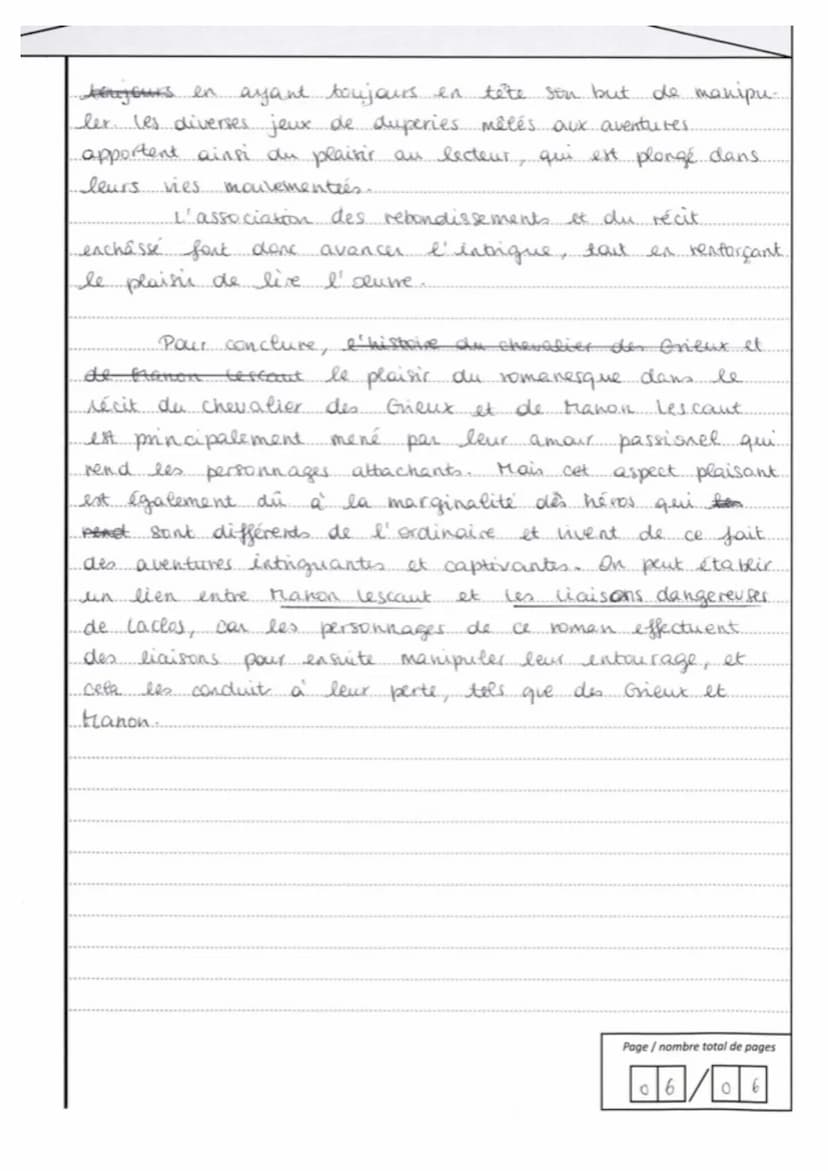 toujours en ayant toujours en tête son but de manipu-
ler. Les diverses jeux de duperies mêlés aux aventures
apportent ainsi du plaisir au lecteur, qui est plongé dans
leurs vies mouvementées.
L'association des rebondissements et du récit
enchâssé font donc avancer l'intrigue, tout en renforçant
le plaisir de lire l'œuvre.
Pour conclure, l'histoire du chevalier des Grieux et
de Manon Lescaut le plaisir du romanesque dans le
récit du chevalier des Grieux et de Manon Lescaut
est principalement mené par leur amour passionel qui
rend les personnages attachants. Mais cet aspect plaisant
est également dû à la marginalité des héros qui les
rend sont différents de l'ordinaire et vivent de ce fait
des aventures intriguantes et captivantes. On peut établir
un lien entre Manon Lescaut et Les Liaisons dangereuses
de Laclos, car les personnages de ce roman effectuent
des liaisons pour ensuite manipuler leur entourage, et
cela les conduit à leur perte, tels que des Grieux et
Manon.
Page / nombre total de pages
06/06